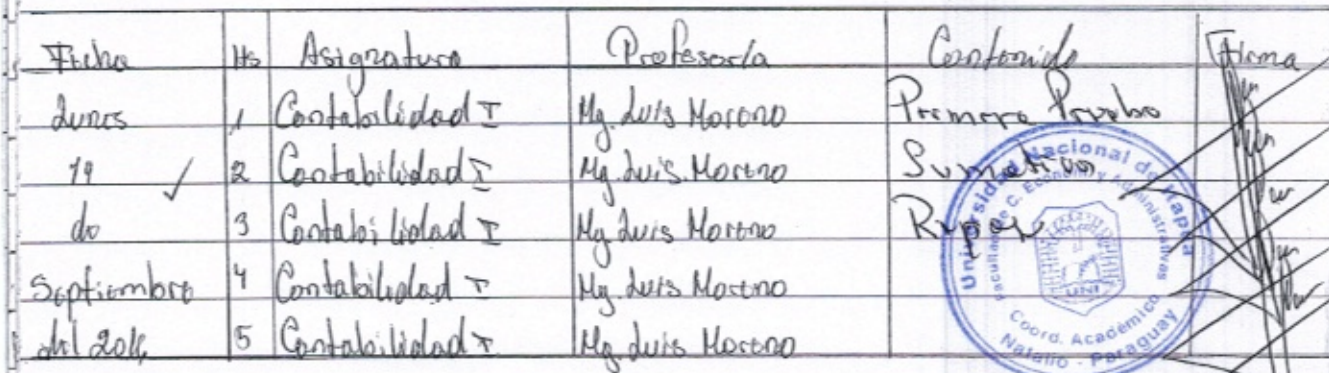 Fecha Hs Asignatura Profesor/a Contenido Firma
Lunes 1 Contabilidad I Mg. Luis Moreno Primera Prueba
19 2 Contabilidad I Mg. Luis Moreno Sumativa
de 3 Contabilidad I Mg Luis Moreno
Septiembre 4 Contabilidad I Mg. Luis Moreno
del 2016 5 Contabilidad I Mg Luis Moreno
Universidad Nacional de Itapúa
Facultad de C. Economía y Administrativas
UNI
Coord. Académico
Natalio - Paraguay